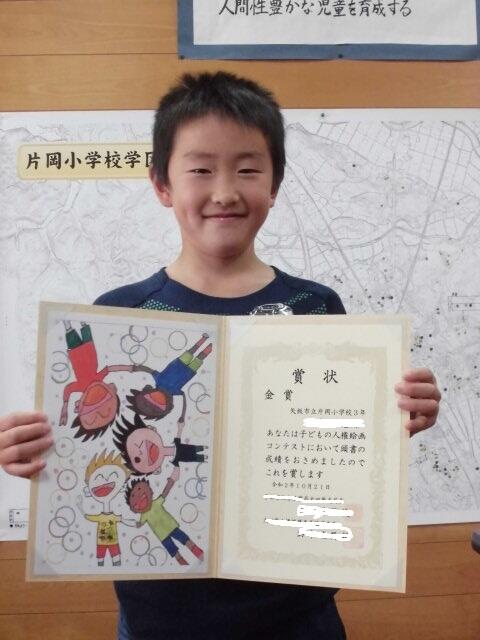 人間性豊かな児童を育成する
片岡小学校学区
賞状
金賞
矢板市立片岡小学校3年
あなたは子どもの人権絵画
コンテストにおいて頭書の
成績をおさめましたので
これを賞します
令和2年10月21日